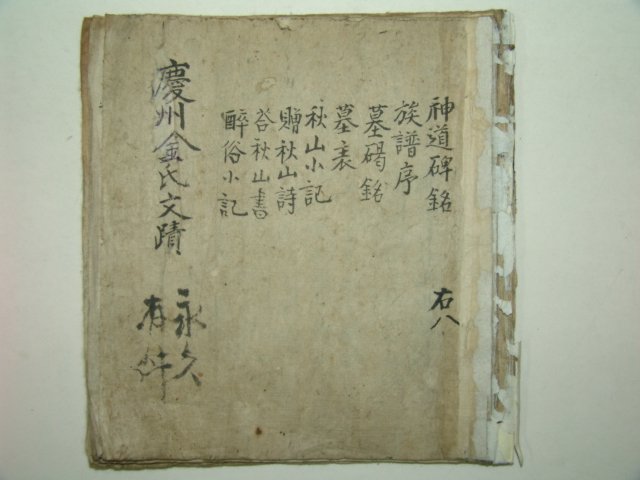 神道碑銘
右八
族譜序
墓碣銘
墓表
秋山小記
贈秋山詩
荅秋山書
醉俗小記
慶州金氏文蹟
永久
有